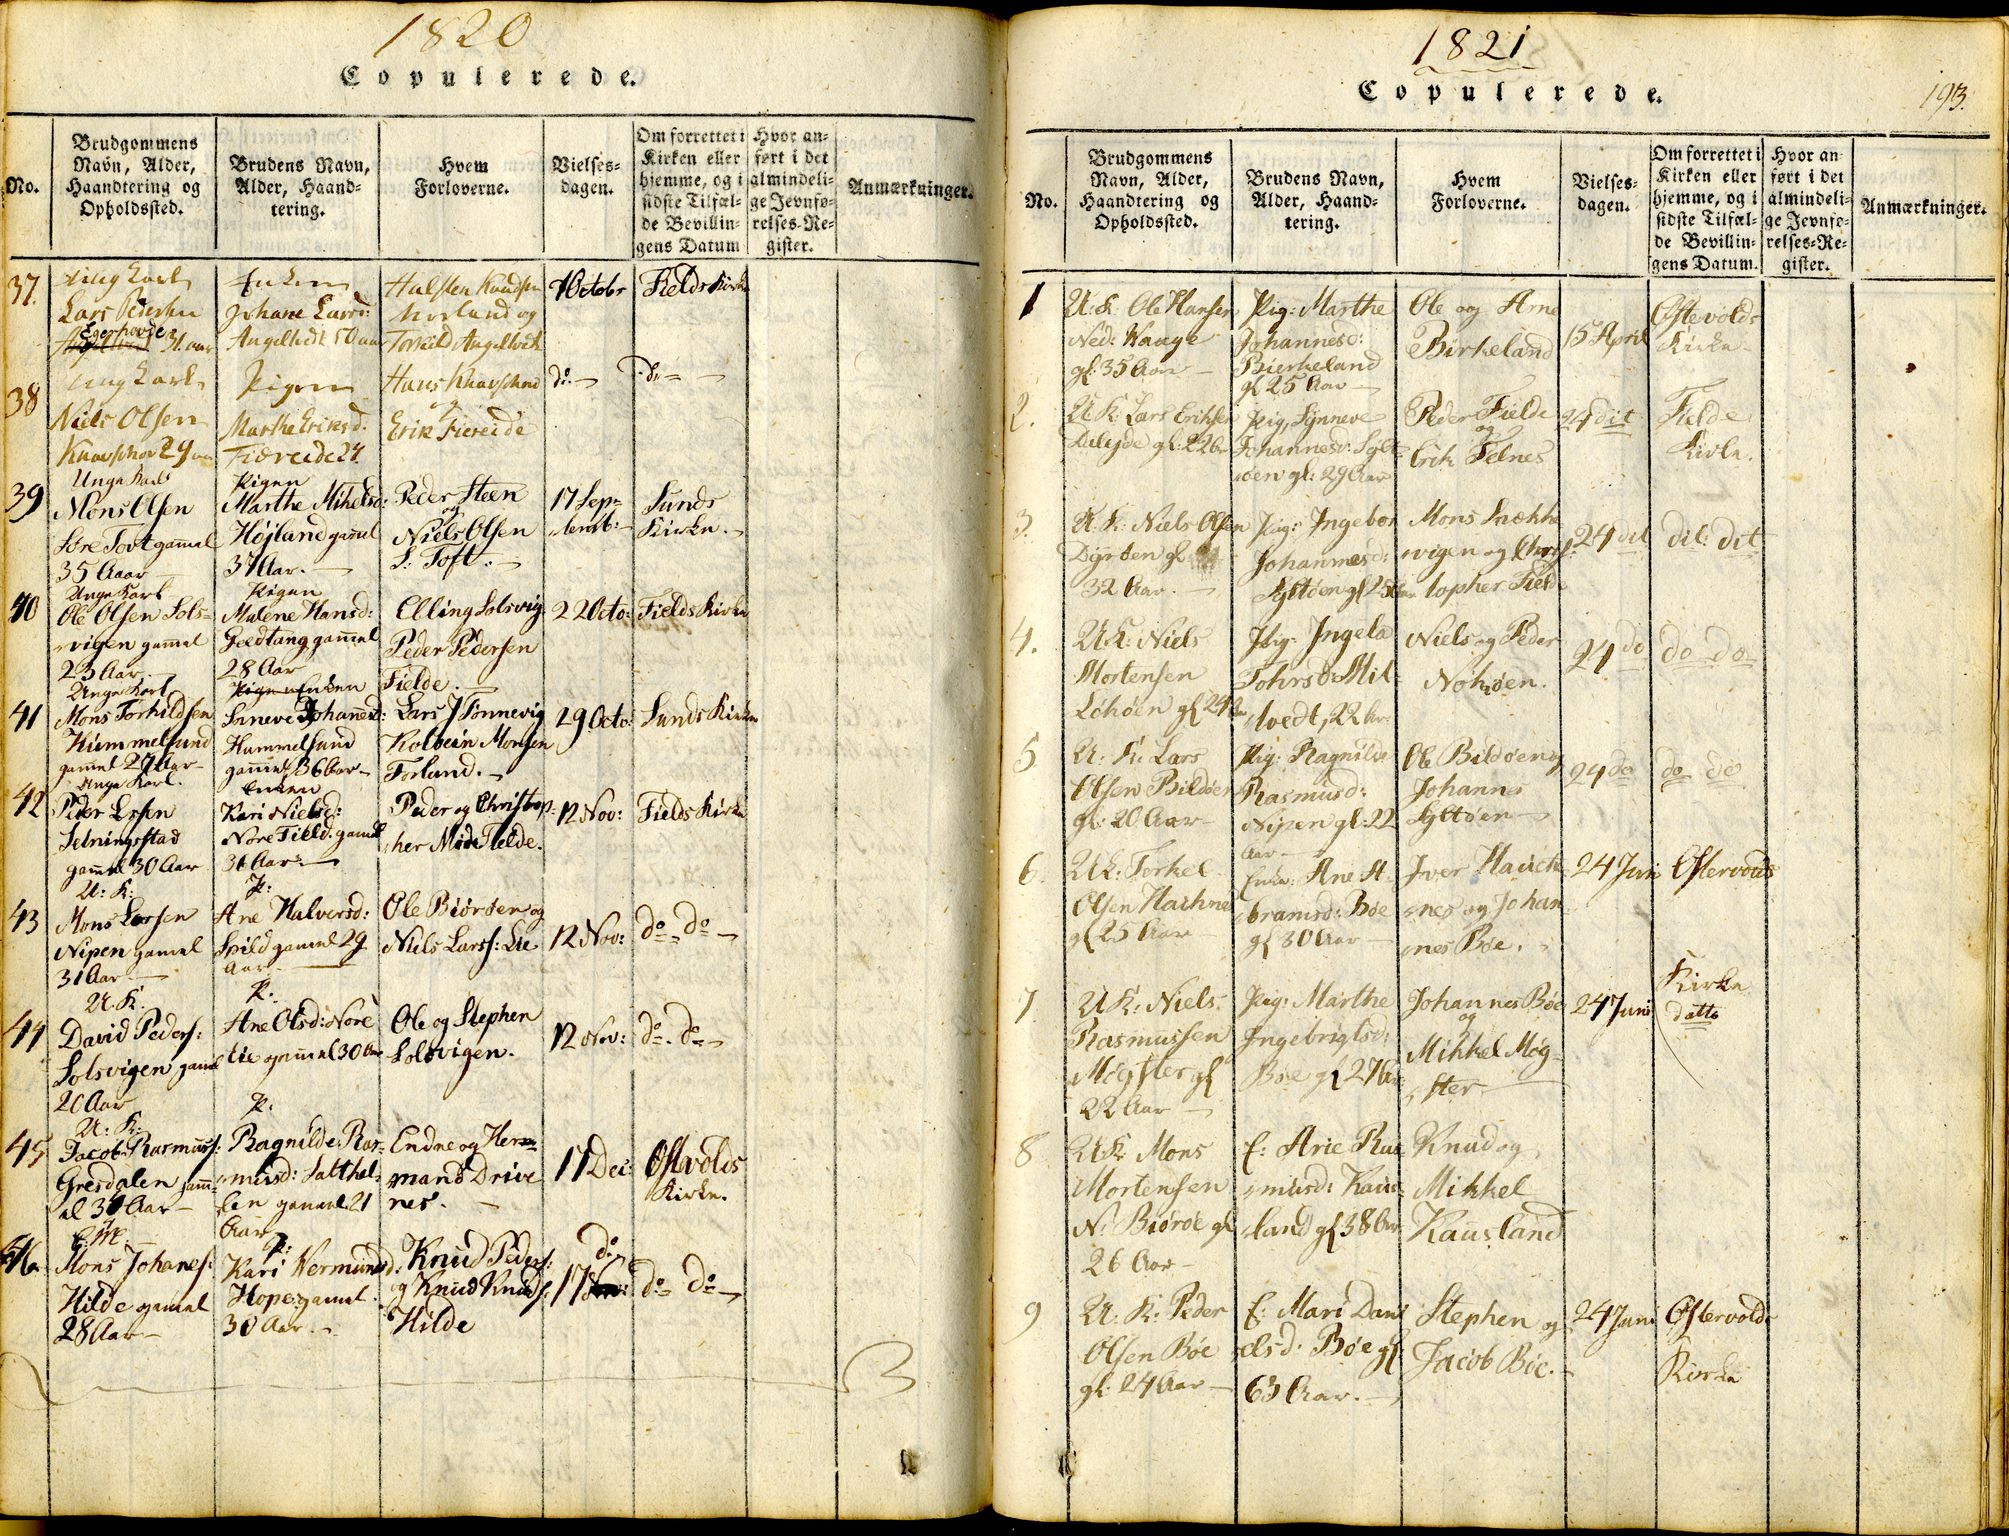 1820
Copulerede.
No.
Brudgommens
Navn, Alder,
Haandtering og
Opholdssted.
Brudens Navn,
Alder, Haand-
tering.
Hvem
Forloverne.
Vielses-
dagen.
Om forrettet i
Kirken eller
hjemme, og i
sidste Tilfæl-
de Bevillin-
gens Datum
Hvor an-
ført i det
almindeli-
ge Jevnfø-
relses-Re-
gister.
Anmærkninger.
37.
Ung Karl
Lars Pedersen
Egerhovde
31. aar
Enken
Johane Larsd:
Angeltvedt 50 aar
Halsten Knudsen
og
Torkild Angeltvedt
1 Octobr
Fields Kirke
38
Ung Karl
Niels Olsen
Knavshov 29 aar
Pigen
Marthe Eriksd.
Fiereide 24.
Hans Knavshov
og
Erik Fiereide
do. —
do —
39
Unge Karl
Mons Olsen
Søre Tovt gammel
35 Aaar
Pigen
Marthe Mikelsd:
Højland gamel
37 Aar. —
Peder Steen
og
Niels Olsen
S: Toft. —
17 Sep-
temb:
Sunds
Kirke. —
40
Unge Karl
Ole Olsen Sols-
vigen gammel
23 Aar.
Pigen
Malene Hansd:
Geedtang gammel
28 Aar
Elling Solsvig
Peder Pedersen
Fielde. —
22 Octo:
Fields Kirke
41
Unge Karl
Mons Torkildsen
Hummelsund
gammel 27 Aar —
Enken
Sineve Johanesd:
Hummelsund
gammel 36 Aar —
Lars J Tønnevig
Kolbein Monsen
Forland. —
29 Octo:
Sunds Kirke
42
Unge Karl.
Peder Larsen
Selningsstad
gammel 30 Aar
Enken
Kari Nielsd:
Nore Field. gamel
31 Aar: —
Peder og Christop-
her Midt Fielde.
12 Nov:
Fields Kirke
43
U: K:
Mons Larsen
Nipen gamel
31 Aar —
P:
Ane Halversd:
Spild gamel 29
Aar —
Ole Biørøen og
Niels Larss: Lie
12 Nov:
do — do —
44
U. K:
David Peders:
Solsvigen gamel
20 Aar
P:
Ane Olsd: Nore
Lie gammel 30 Aar
Ole og Stephen
Solsvigen.
12 Nov:
do — do —
45
U: K:
Jacob Rasmuss:
Gresdalen gamm-
el 30 Aar —
P.
Ragnilde Ras-
musd: Satthel-
len gammel 21
Aar
Endne og Her-
mand Drive
nes. —
17 Dec:
Ostvolds
Kirke.
46
Mons Johanes:
Hilde gamel
28 Aar —
P:
Kari Vermunsd:
Hope gamel
30 Aar. —
Knud Peders:
og Knud Knuds:
Hilde
do
17
do do —
1821
Copulerede.
193.
No.
Brudgommens
Navn, Alder,
Haandtering og
Opholdssted.
Brudens Navn,
Alder, Haand-
tering.
Hvem
Forloverne.
Vielses-
dagen.
Om forrettet i
Kirken eller
hjemme, og i
sidste Tilfæl-
de Bevillin-
gens Datum.
Hvor an-
ført i det
almindeli-
ge Jevnfø-
relses-Re-
gister.
Anmærkninger.
1
U: K: Ole Hansen
Ned: Waage
gl: 35 Aar —
Pig: Marthe
Johannesd:
Bierkeland
gl 25 Aar —
Ole og Arne
Birkeland
15 April
Østevolds
Kirke —
2.
U K: Lars Eriksen
gl: 22 Aar
Pig: Synneve
Johannesd: Sylt-
øen gl: 29 Aar
Peder Fielde
og
Erik Telnes
24 dit
Fielde
Kirke.
3.
U. K: Niels Olsen
Dyrøen gl:
32 Aar. —
Pig: Ingebor
Johannesd:
Syltøen gl 25 Aar
Mons Snekke
vigen og Chris-
topher Fielde
24 dit
dit: dit
4.
U K: Niels
Mortensen
Løhøen gl 24 Aar
Pig: Ingela
Mil-
tvedt, 22 Aar
Niels og Peder
24 do
do do
5
U: K: Lars
Olsen Bildøen
gl: 20 Aar —
Pig: Ragnilde
Rasmusd:
Nipen gl: 22
Aar —
Ole Bildøen og
Johannes
Syltøen —
24 do
do do
6
U K: Torkel
Olsen Hachnes
gl 25 Aar —
Enke: Ane A-
bramsd: Bøe
gl 30 Aar —
Iver Hauch-
nes og Johan
nes Bøe.
24 Juni
Østervolds
Kirke
7
U K: Niels
Rasmussen
Møgster gl
22 Aar —
Pig: Marthe
Ingebrigtsd:
Bøe gl 27 Aar
Johannes Bøe
og
Mikkel Møg-
ster —
24 Juni
datto
8
U K Mons
Mortensen
N: Biørøe gl
26 Aar —
E: Arie Ras
musd: Kaus-
land gl 38 Aar
Knud og
Mikkel
Kausland
9
U. K: Peder
Olsen Bøe
gl: 24 Aar —
E: Mari Dani
elsd: Bøe gl
63 Aar. —
Stephen og
Jacob Bøe. —
24 Juni
Østervolds
Kirke